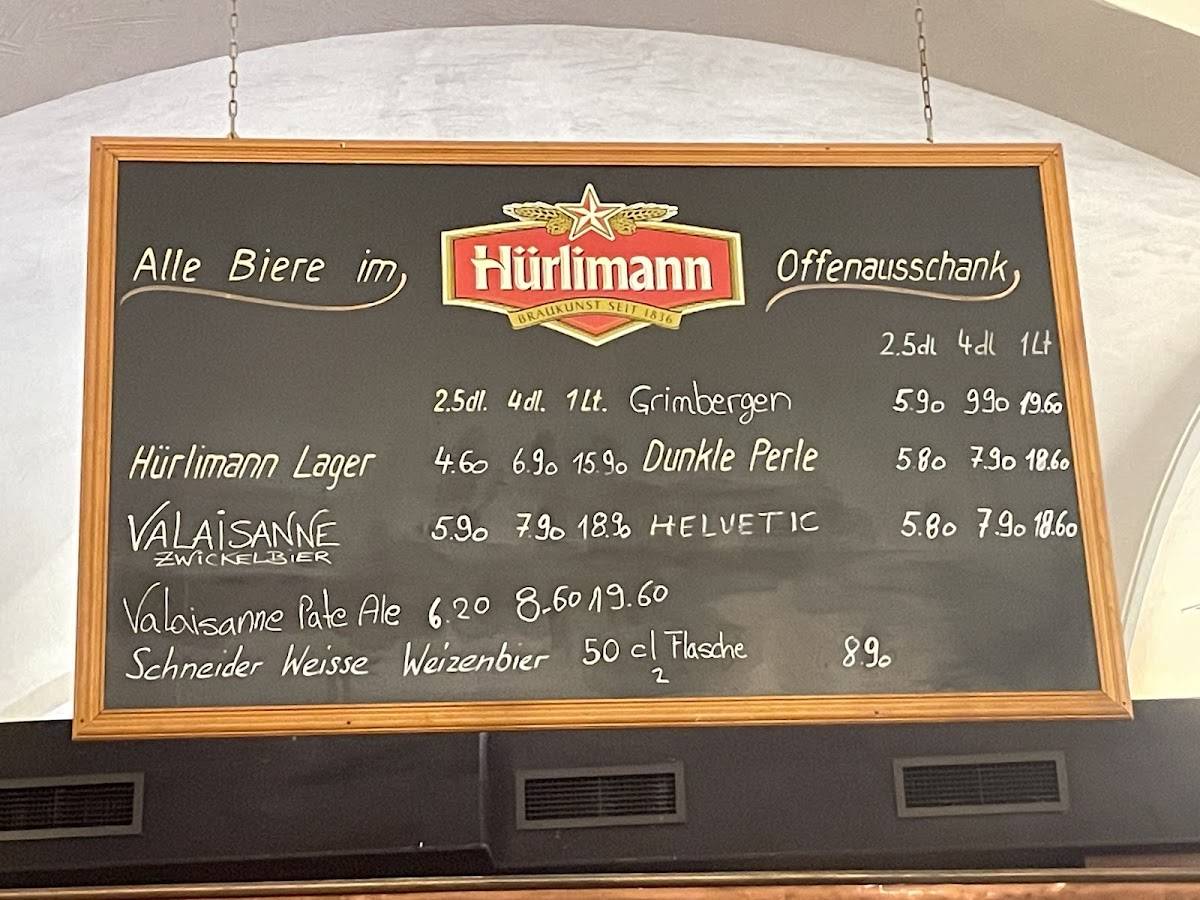 Alle Biere im
Hürlimann
BRAUKUNST SEIT 1836
Offenausschank
2.5dl 4dl 1Lt
2.5dl. 4dl. 1Lt. Grimbergen 5.90 9.90 19.60
Hürlimann Lager 4.60 6.90 15.90 Dunkle Perle 5.80 7.90 18.60
VALAISANNE 5.90 7.90 18.90 HELVETIC 5.80 7.90 18.60
ZWICKELBIER
Valaisanne Pale Ale 6.20 8.60 19.60
Schneider Weisse Weizenbier 50 cl Flasche 8.90
2